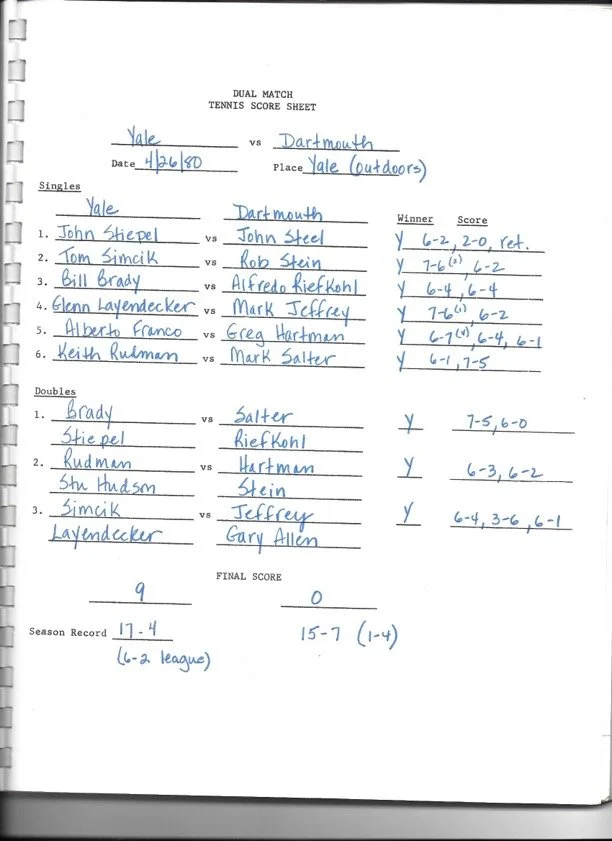 DUAL MATCH
TENNIS SCORE SHEET
Yale vs Dartmouth
Date 4/26/80 Place Yale (outdoors)
Singles
Yale Dartmouth Winner Score
1. John Stiepel vs John Steel Y 6-2, 2-0, ret.
2. Tom Simcik vs Rob Stein Y 7-6(2), 6-2
3. Bill Brady vs Alfredo Riefkohl Y 6-4, 6-4
4. Glenn Layendecker vs Mark Jeffrey Y 7-6(1), 6-2
5. Alberto Franco vs Greg Hartman Y 6-7(4), 6-4, 6-1
6. Keith Rudman vs Mark Salter Y 6-1, 7-5
Doubles
1. Brady vs Salter Y 7-5, 6-0
Stiepel Riefkohl
2. Rudman vs Hartman Y 6-3, 6-2
Stu Hudson Stein
3. Simcik vs Jeffrey Y 6-4, 3-6, 6-1
Layendecker Gary Allen
FINAL SCORE
9 0
Season Record 17-4 15-7 (1-4)
(6-2 league)